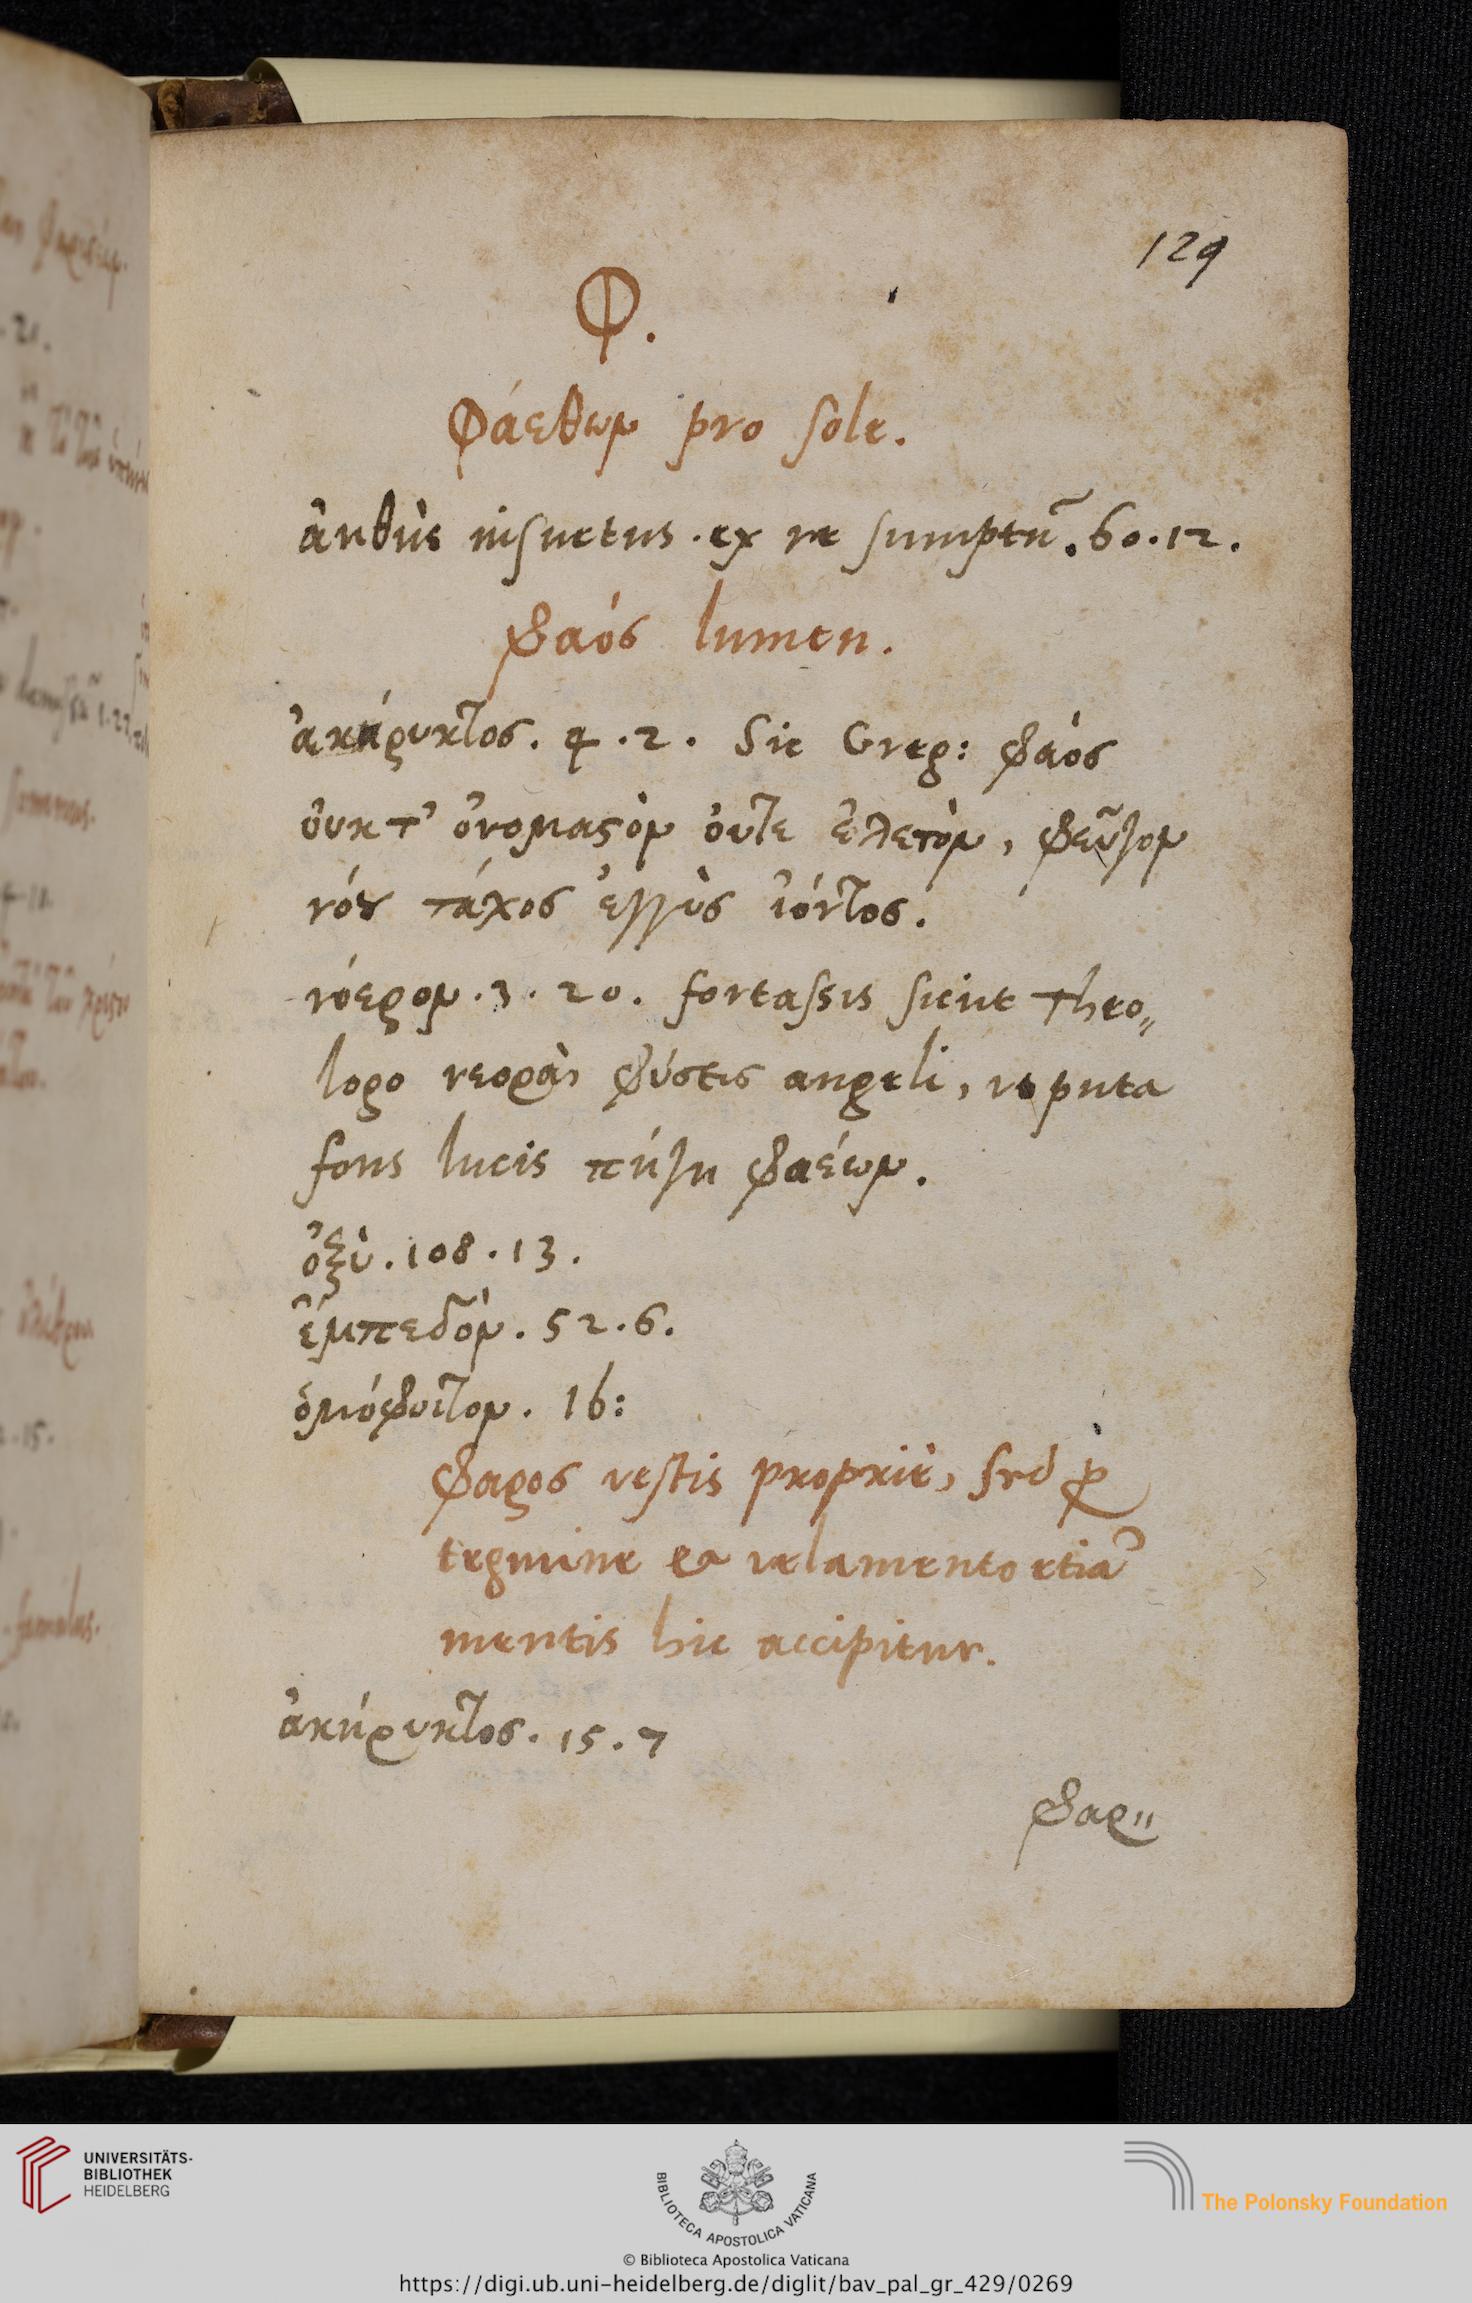 129
Φ.
Φάεθων pro sole.
ἀηθὴς insuetus. ex re sumptũ. 60.12.
φαός lumen.
ἀκήρυκτος. 4.2. Sic Greg: φάος
οὐκτ' ὀνομαστὸν οὔτε ἑλετὸν, φεῦγον
νόου τάχος ἐγγὺς ἰόντος.
νόερον. 3. 20. fortassis sicut Theo„
logo φύσεις angeli, puta
fons lucis πήγη φαέων.
ὀξὺ. 108. 13.
ἔμπεδὸν. 52.6.
ὁμόφοιτον. 16:
φαρος vestis propriè, sed ꝓ
tegmine & velamento etiã
mentis hic accipitur.
ἀκήρυκτος. 15.7
φαρ„
UNIVERSITÄTS-
BIBLIOTHEK
HEIDELBERG
BIBLIOTECA APOSTOLICA VATICANA
The Polonsky Foundation
© Biblioteca Apostolica Vaticana
https://digi.ub.uni-heidelberg.de/diglit/bav_pal_gr_429/0269